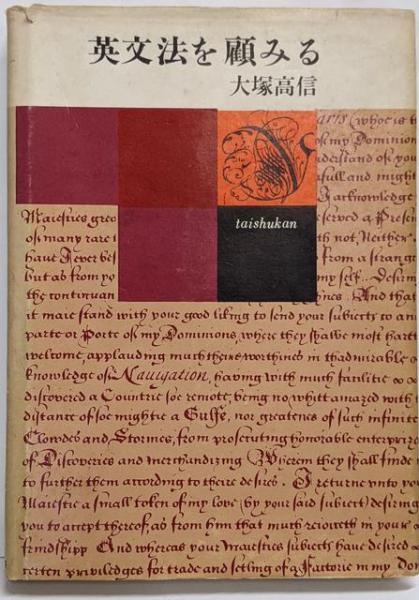 英文法を顧みる
大塚高信
arts (whoe is t
of my Dominion
derstand of you
full and might
I acknowledge
Maiesties greo
eserved a Presen
of many rare
th not, Neither
haue Never bef
from a strange
taishukan
but as from yo
my self. Desirin
the continuan
ines. And that
it maie stand with your good liking to send your subiects to an
parte or Porte of my Dominions, where they shalbe most hartt
welcome, applauding much theire worthines in thadmirable
knowledge of Nauigation, having with much facilitie
discovered a Countrie soe remote, being no whitt amazed with
distance of soe mightie a Gulfe, nor greatenes of such infinite
Clowdes and Stormes, from prosecuting honorable enterprize
of Discoveries and merchandizing Wherein they shall finde
to further them according to theire desires. I returne vnto yo
Maiestie a small token of my love (by your said subiect) desiring
you to accept thereof, as from him that much reioiceth in your
frindshipp And whereas your Maiesties subiects haue desired
certen priviledges for trade and setling of a Factorie in my Dom